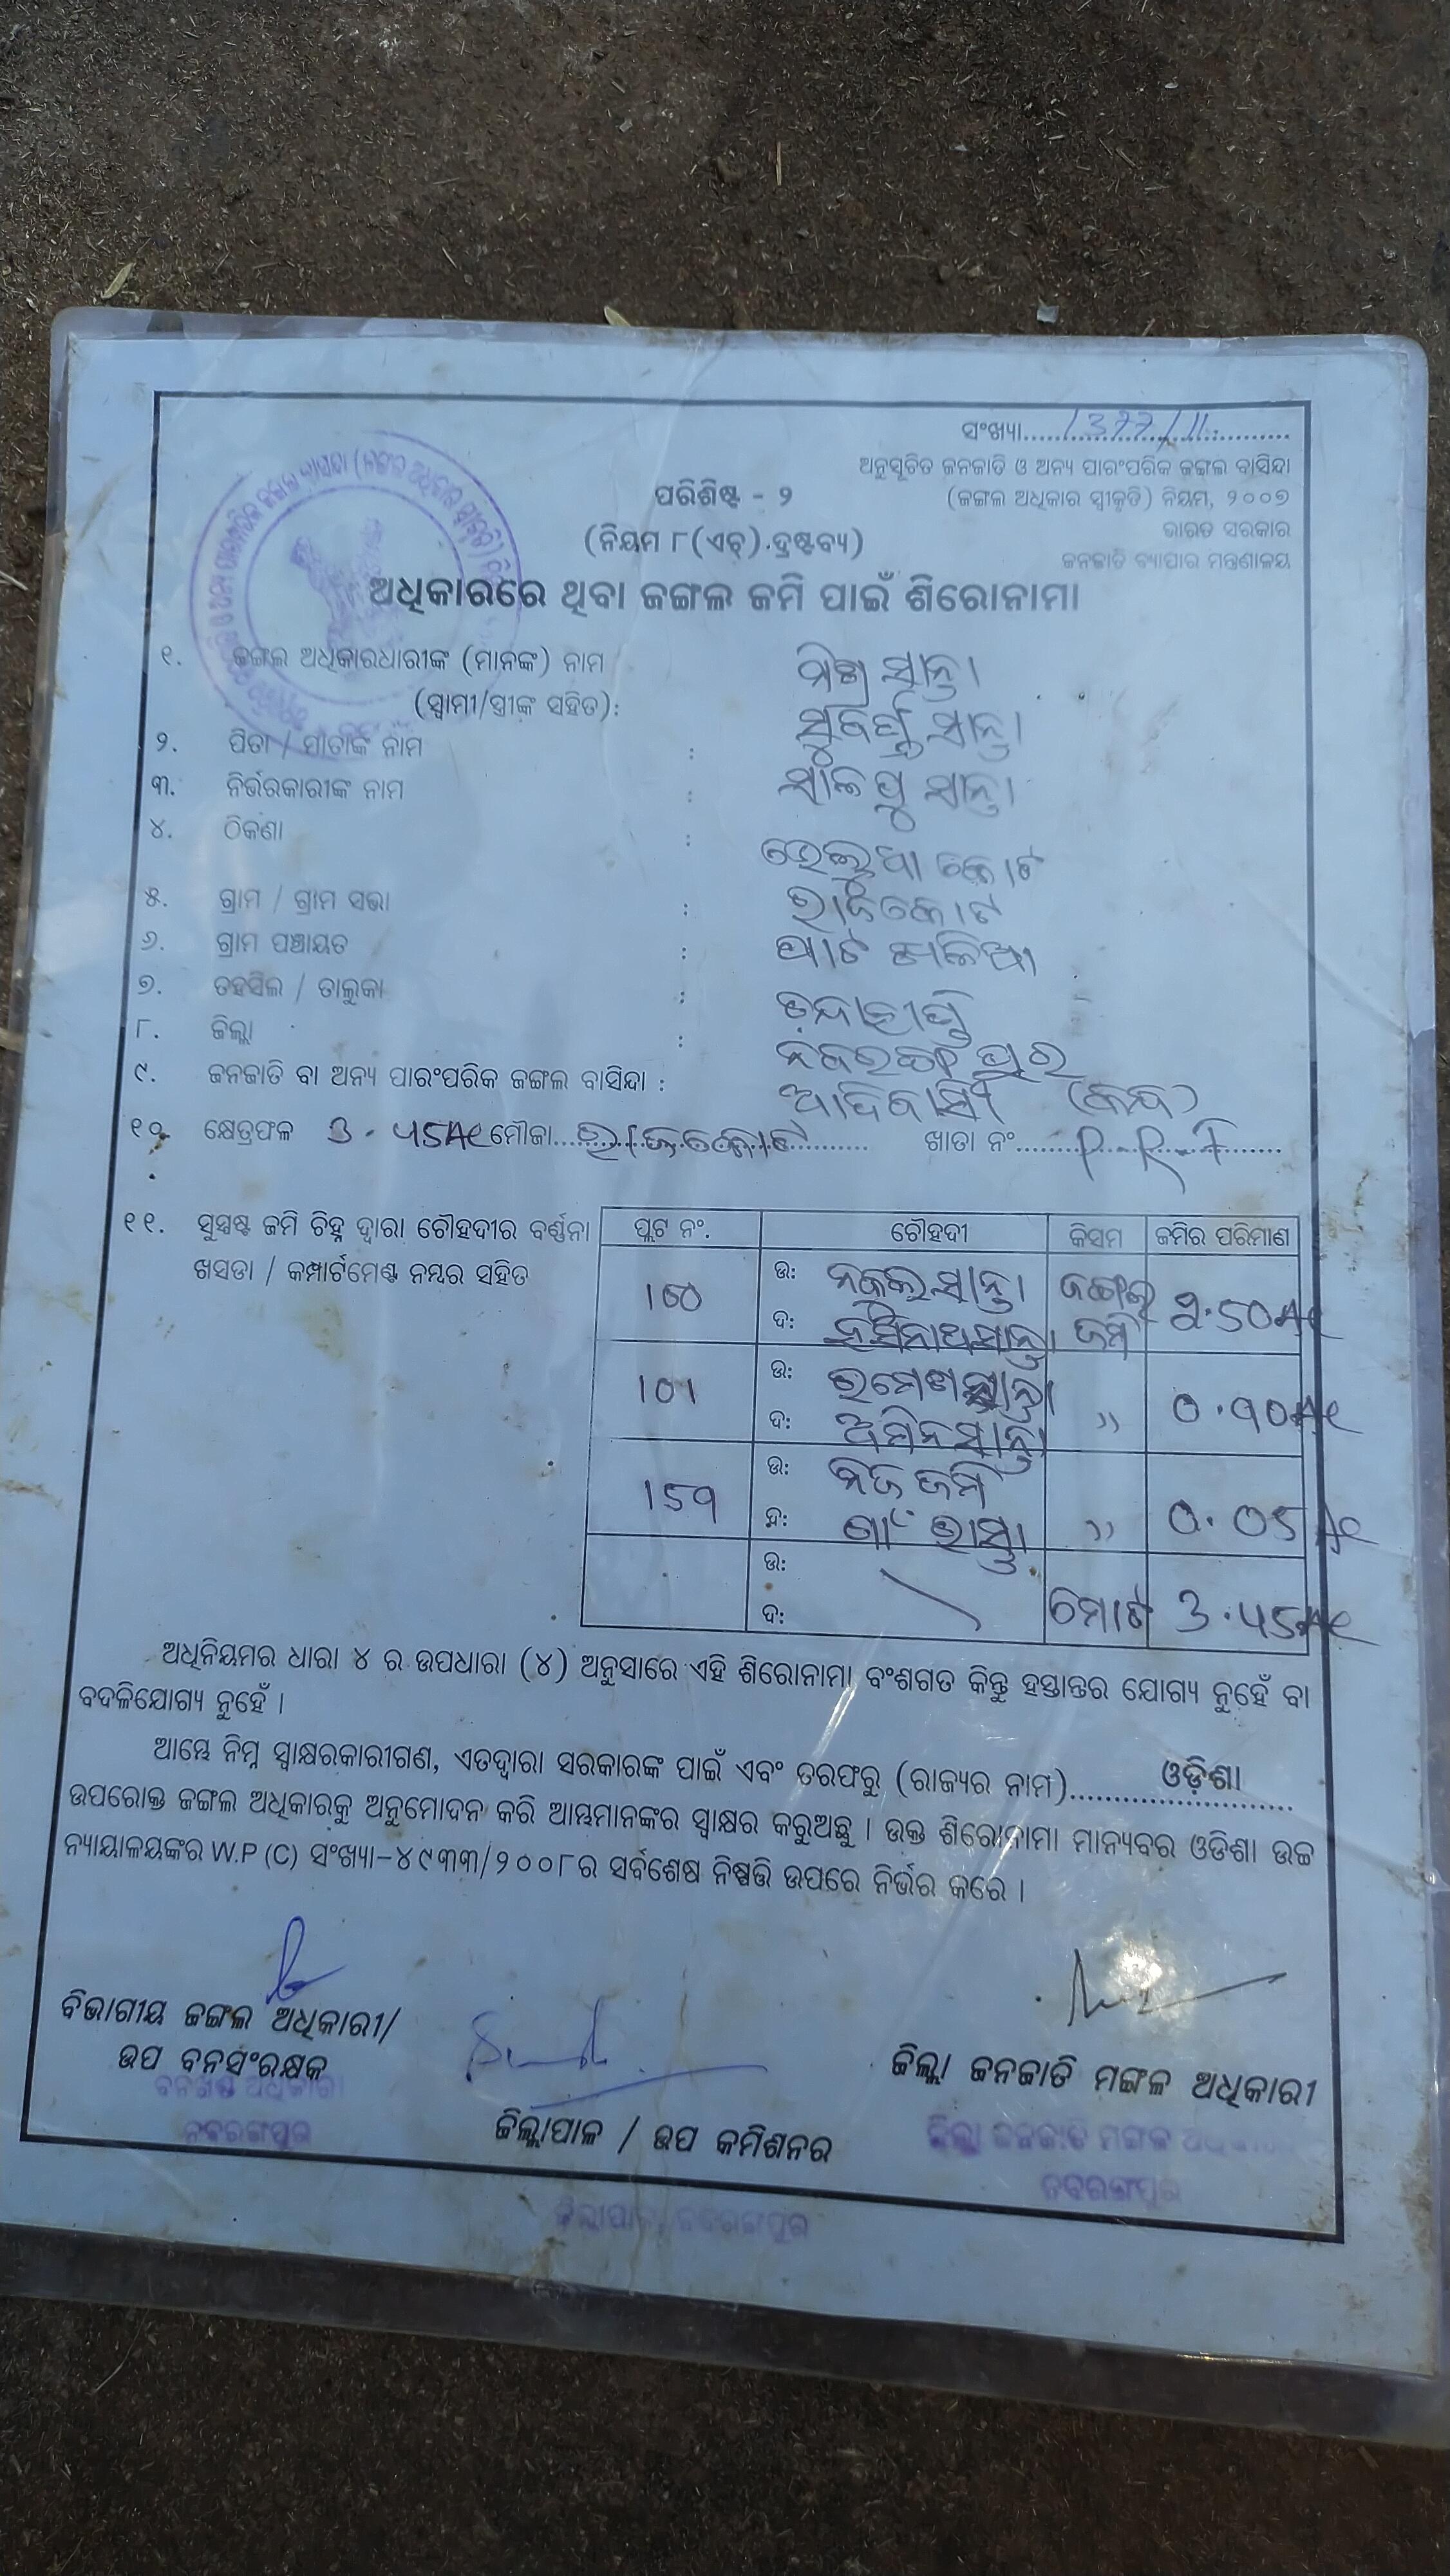 ସଂଖ୍ୟା 1377/11
ଅନୁସୂଚିତ ଜନଜାତି ଓ ଅନ୍ୟ ପାରଂପରିକ ଜଙ୍ଗଲ ବାସିନ୍ଦା
ପରିଶିଷ୍ଟ - ୨
(ଜଙ୍ଗଲ ଅଧିକାର ସ୍ୱୀକୃତି) ନିୟମ, ୨୦୦୭
ଭାରତ ସରକାର
(ନିୟମ ୮(ଏଚ୍) ଦ୍ରଷ୍ଟବ୍ୟ)
ଜନଜାତି ବ୍ୟାପାର ମନ୍ତ୍ରଣାଳୟ
ଅଧିକାରରେ ଥିବା ଜଙ୍ଗଲ ଜମି ପାଇଁ ଶିରୋନାମା
୧. ଜଙ୍ଗଲ ଅଧିକାରଧାରୀଙ୍କ (ମାନଙ୍କ) ନାମ ସାନ୍ତା
(ସ୍ୱାମୀ/ସ୍ତ୍ରୀଙ୍କ ସହିତ):
୨. ପିତା / ମାତାଙ୍କ ନାମ : ସାନ୍ତା
୩. ନିର୍ଭରକାରୀଙ୍କ ନାମ : ସାନ୍ତା
୪. ଠିକଣା :
୫. ଗ୍ରାମ / ଗ୍ରାମ ସଭା : ରାଜକୋଟ
୬. ଗ୍ରାମ ପଞ୍ଚାୟତ :
୭. ତହସିଲ / ତାଲୁକା :
୮. ଜିଲ୍ଲା : ନବରଙ୍ଗପୁର
୯. ଜନଜାତି ବା ଅନ୍ୟ ପାରଂପରିକ ଜଙ୍ଗଲ ବାସିନ୍ଦା : ଆଦିବାସୀ
୧୦. କ୍ଷେତ୍ରଫଳ 3.45Ac ମୌଜା ରାଜକୋଟ ଖାତା ନଂ P.R.F
୧୧. ସୁସ୍ପଷ୍ଟ ଜମି ଚିହ୍ନ ଦ୍ୱାରା ଚୌହଦୀର ବର୍ଣ୍ଣନା
ଖସଡା / କମ୍ପାର୍ଟମେଣ୍ଟ ନମ୍ବର ସହିତ
ପ୍ଲଟ ନଂ. ଚୌହଦୀ କିସମ ଜମିର ପରିମାଣ
160 ଉ: ସାନ୍ତା ଜଙ୍ଗଲ 2.50Ac
ଦ: ସାନ୍ତା ଜମି
101 ଉ: ରମେଶ ସାନ୍ତା " 0.90Ac
ଦ: ସାନ୍ତା
159 ଉ: ନିଜ ଜମି " 0.05Ac
ଦ: ଗାଁ ରାସ୍ତା
ଉ: ମୋଟ 3.45Ac
ଦ:
ଅଧିନିୟମର ଧାରା ୪ ର ଉପଧାରା (୪) ଅନୁସାରେ ଏହି ଶିରୋନାମା ବଂଶଗତ କିନ୍ତୁ ହସ୍ତାନ୍ତର ଯୋଗ୍ୟ ନୁହେଁ ବା
ବଦଳିଯୋଗ୍ୟ ନୁହେଁ ।
ଆମ୍ଭେ ନିମ୍ନ ସ୍ୱାକ୍ଷରକାରୀଗଣ, ଏତଦ୍ୱାରା ସରକାରଙ୍କ ପାଇଁ ଏବଂ ତରଫରୁ (ରାଜ୍ୟର ନାମ) ଓଡ଼ିଶା
ଉପରୋକ୍ତ ଜଙ୍ଗଲ ଅଧିକାରକୁ ଅନୁମୋଦନ କରି ଆମ୍ଭମାନଙ୍କର ସ୍ୱାକ୍ଷର କରୁଅଛୁ । ଉକ୍ତ ଶିରୋନାମା ମାନ୍ୟବର ଓଡିଶା ଉଚ୍ଚ
ନ୍ୟାୟାଳୟଙ୍କର W.P (C) ସଂଖ୍ୟା-୪୯୩୩/୨୦୦୮ର ସର୍ବଶେଷ ନିଷ୍ପତ୍ତି ଉପରେ ନିର୍ଭର କରେ ।
ବିଭାଗୀୟ ଜଙ୍ଗଲ ଅଧିକାରୀ/
ଉପ ବନସଂରକ୍ଷକ
ଜିଲ୍ଲା ଜନଜାତି ମଙ୍ଗଳ ଅଧିକାରୀ
ଜିଲ୍ଲାପାଳ / ଉପ କମିଶନର
ବନଖଣ୍ଡ ଅଧିକାରୀ
ନବରଙ୍ଗପୁର
ଜିଲ୍ଲା ଜନଜାତି ମଙ୍ଗଳ ଅଧିକାରୀ
ନବରଙ୍ଗପୁର
ଜିଲ୍ଲାପାଳ, ନବରଙ୍ଗପୁର